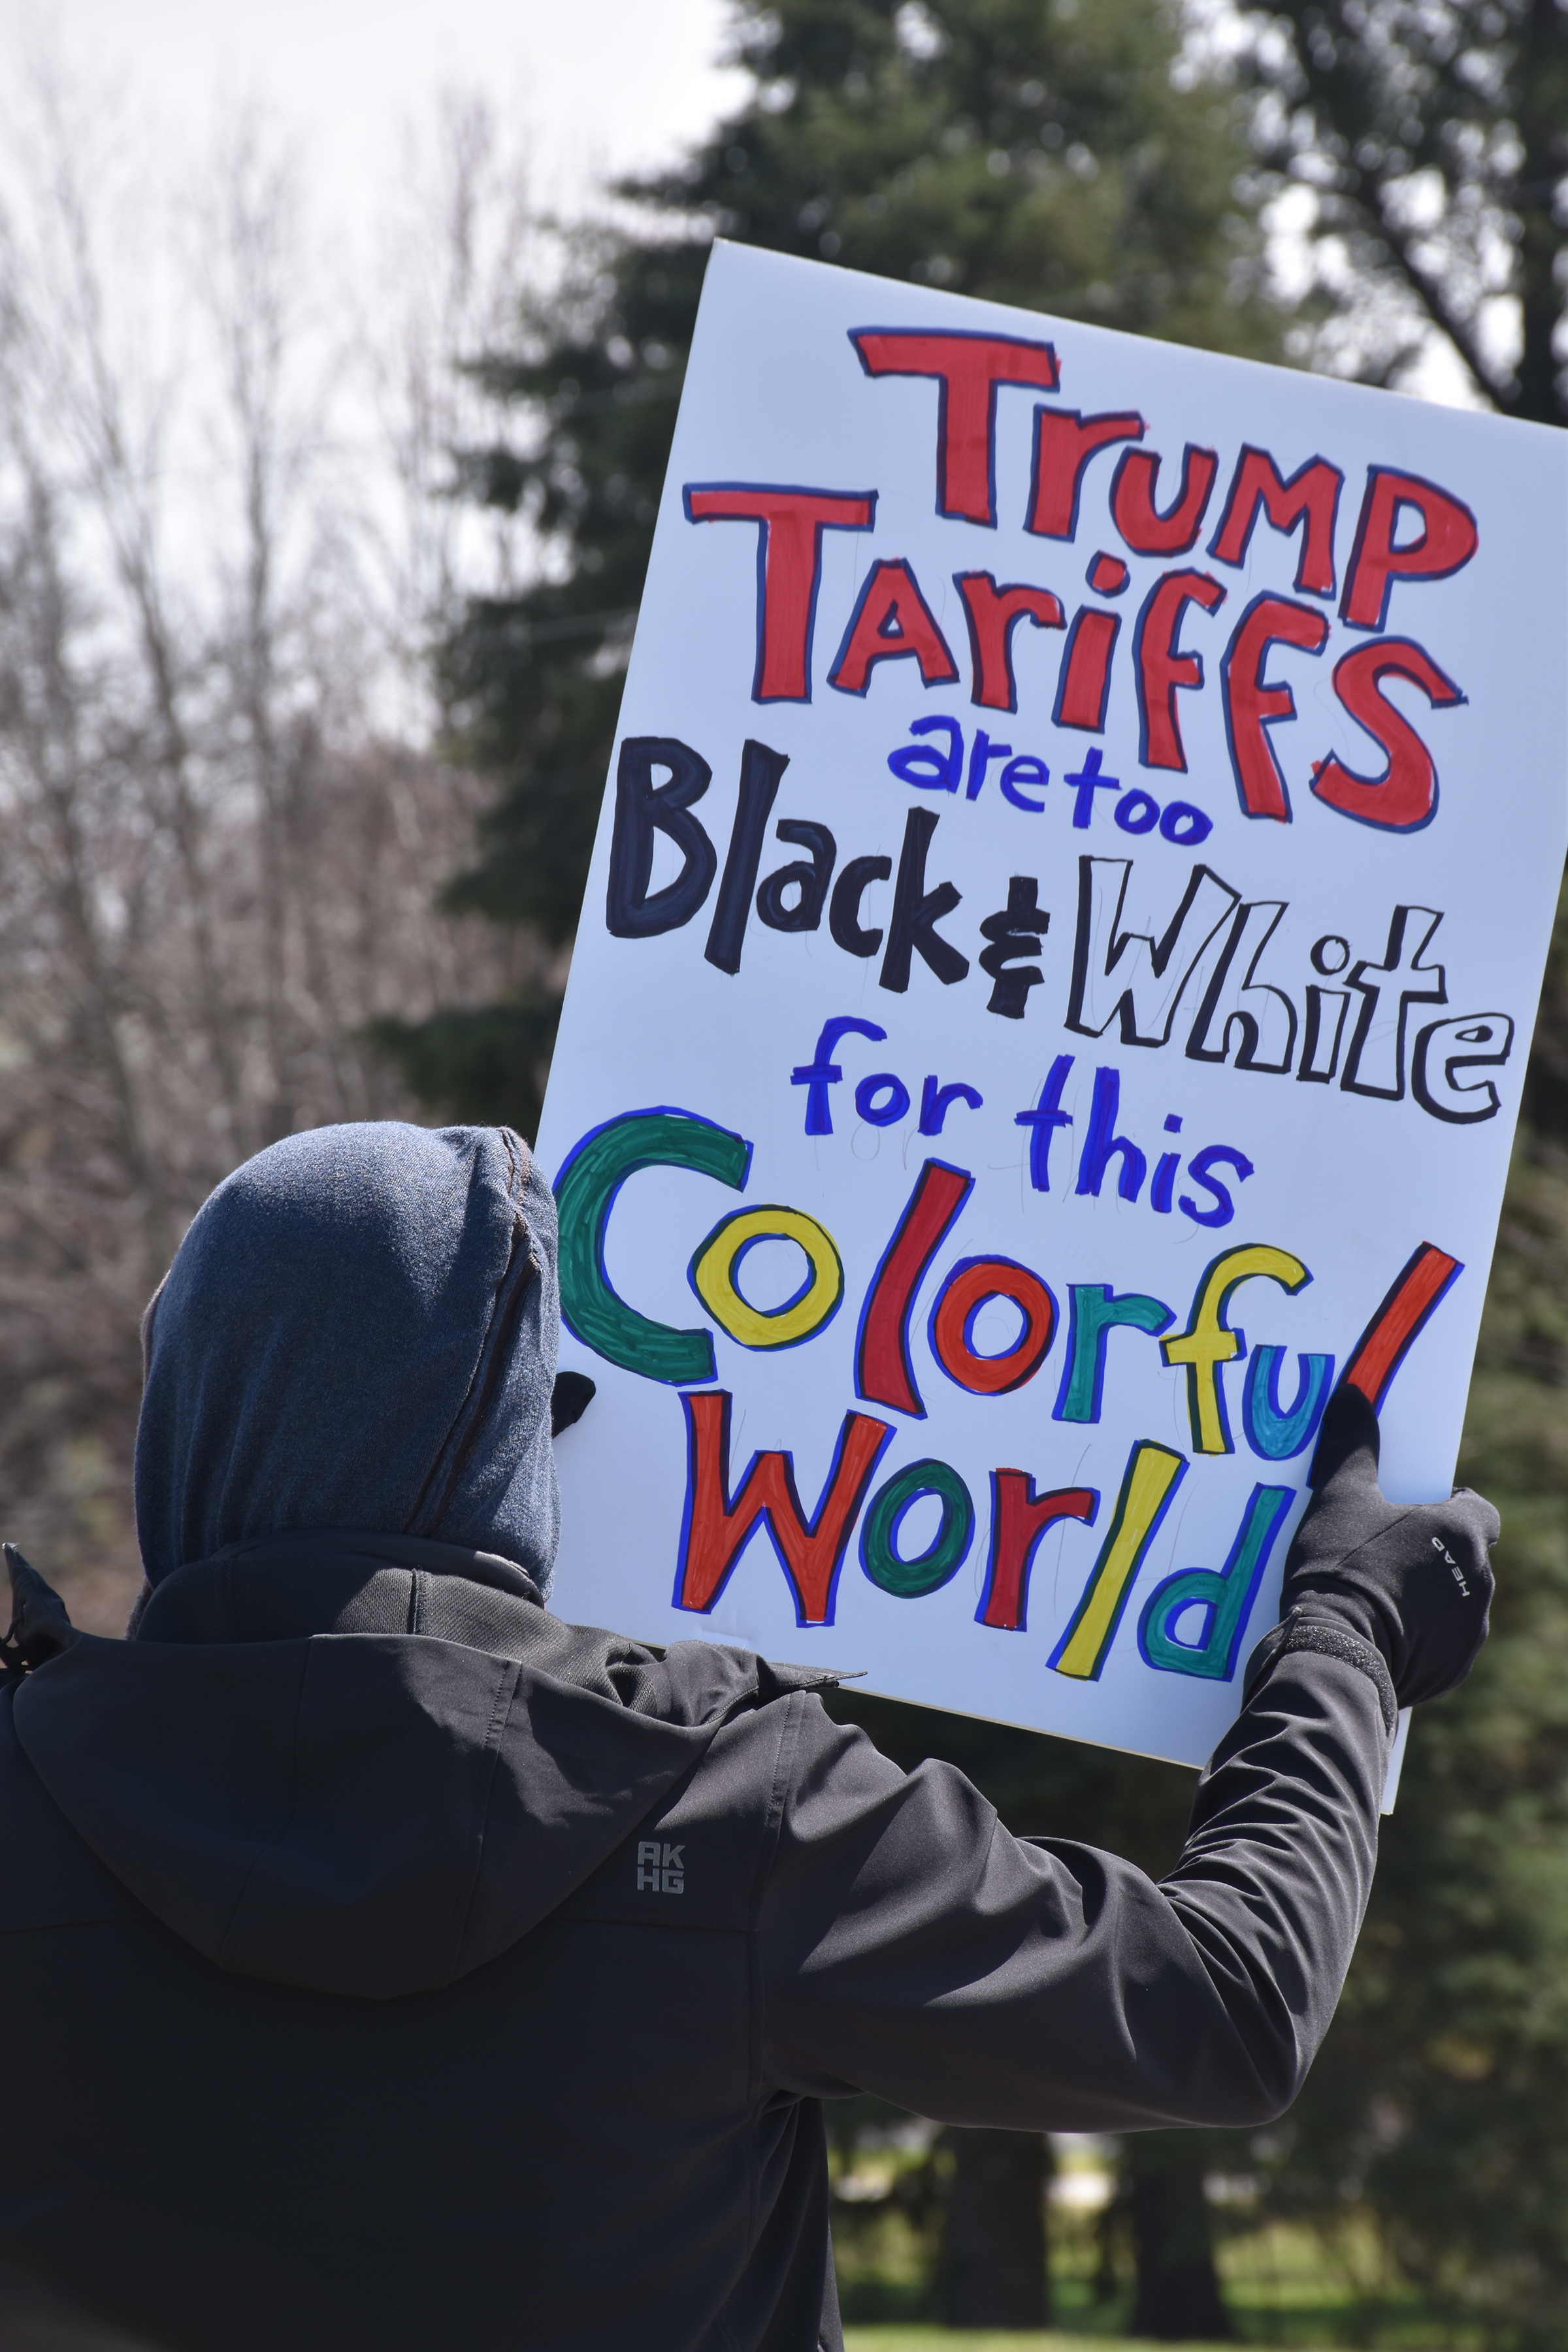 Trump
Tariffs
are too
Black & White
for this
Colorful
World
HEAD
AK
HG